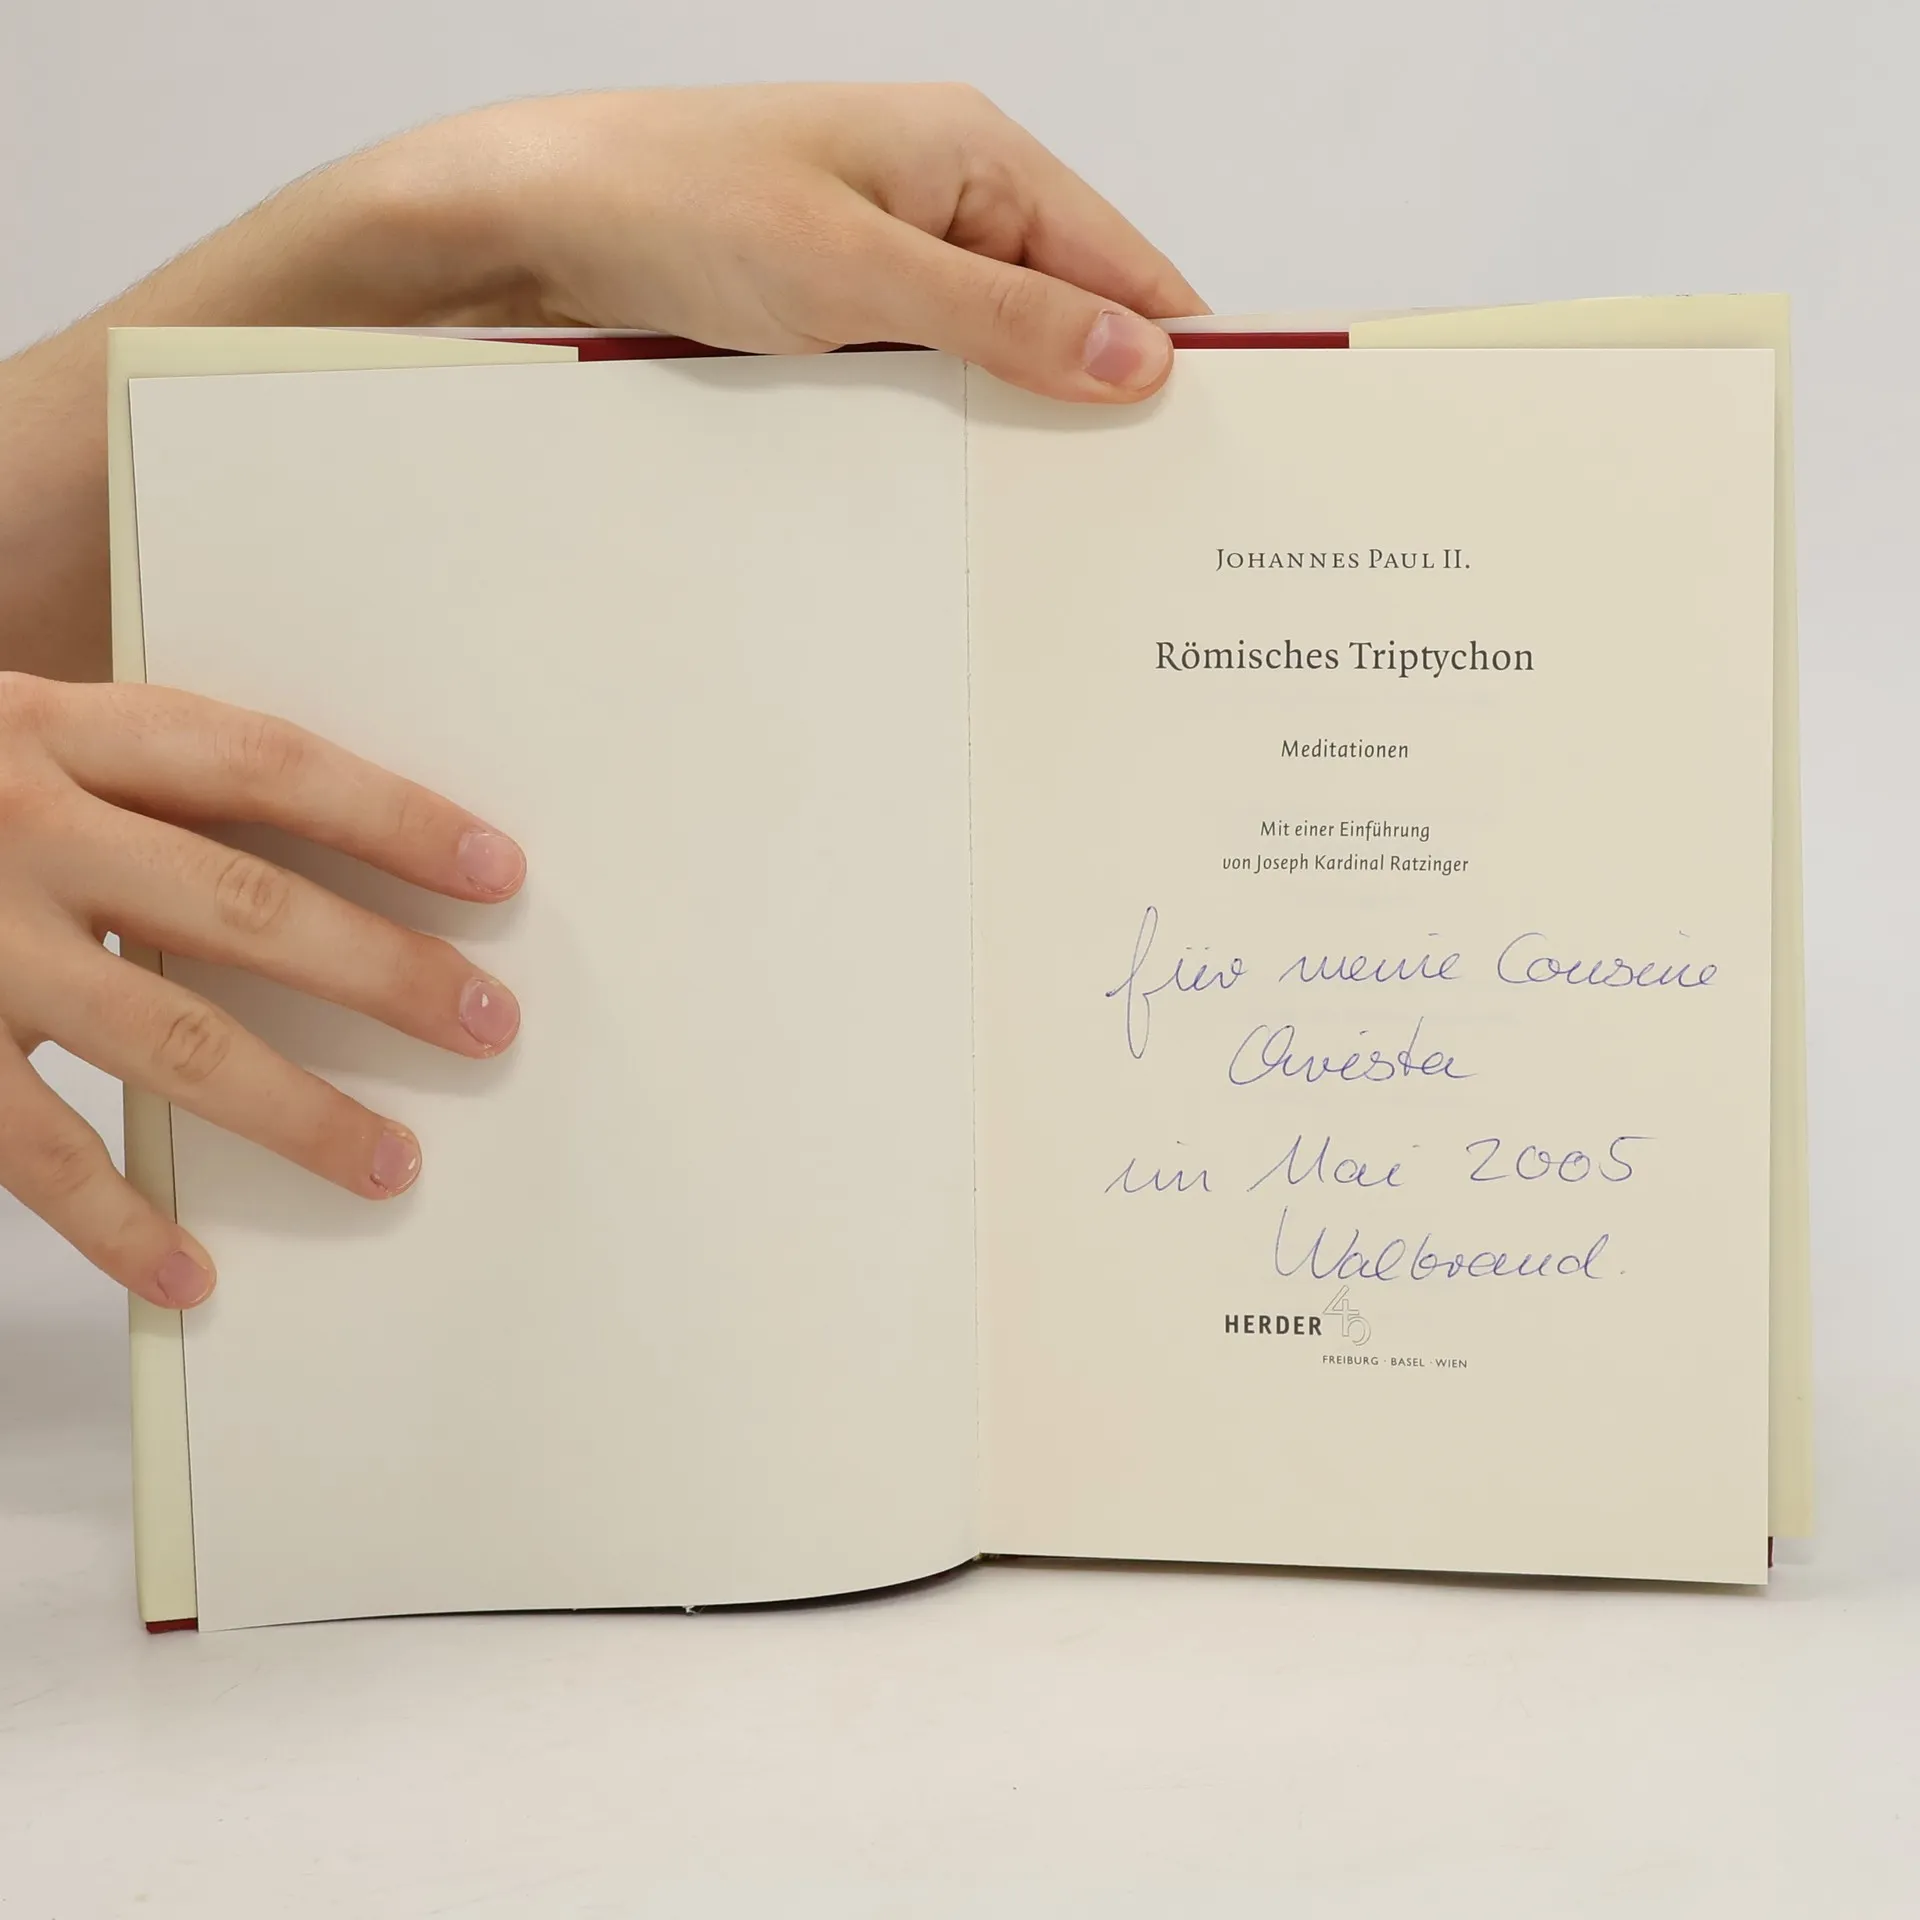 JOHANNES PAUL II.
Römisches Triptychon
Meditationen
Mit einer Einführung
von Joseph Kardinal Ratzinger
für meine Cousine
im Mai 2005
Walbrand.
HERDER
FREIBURG · BASEL · WIEN